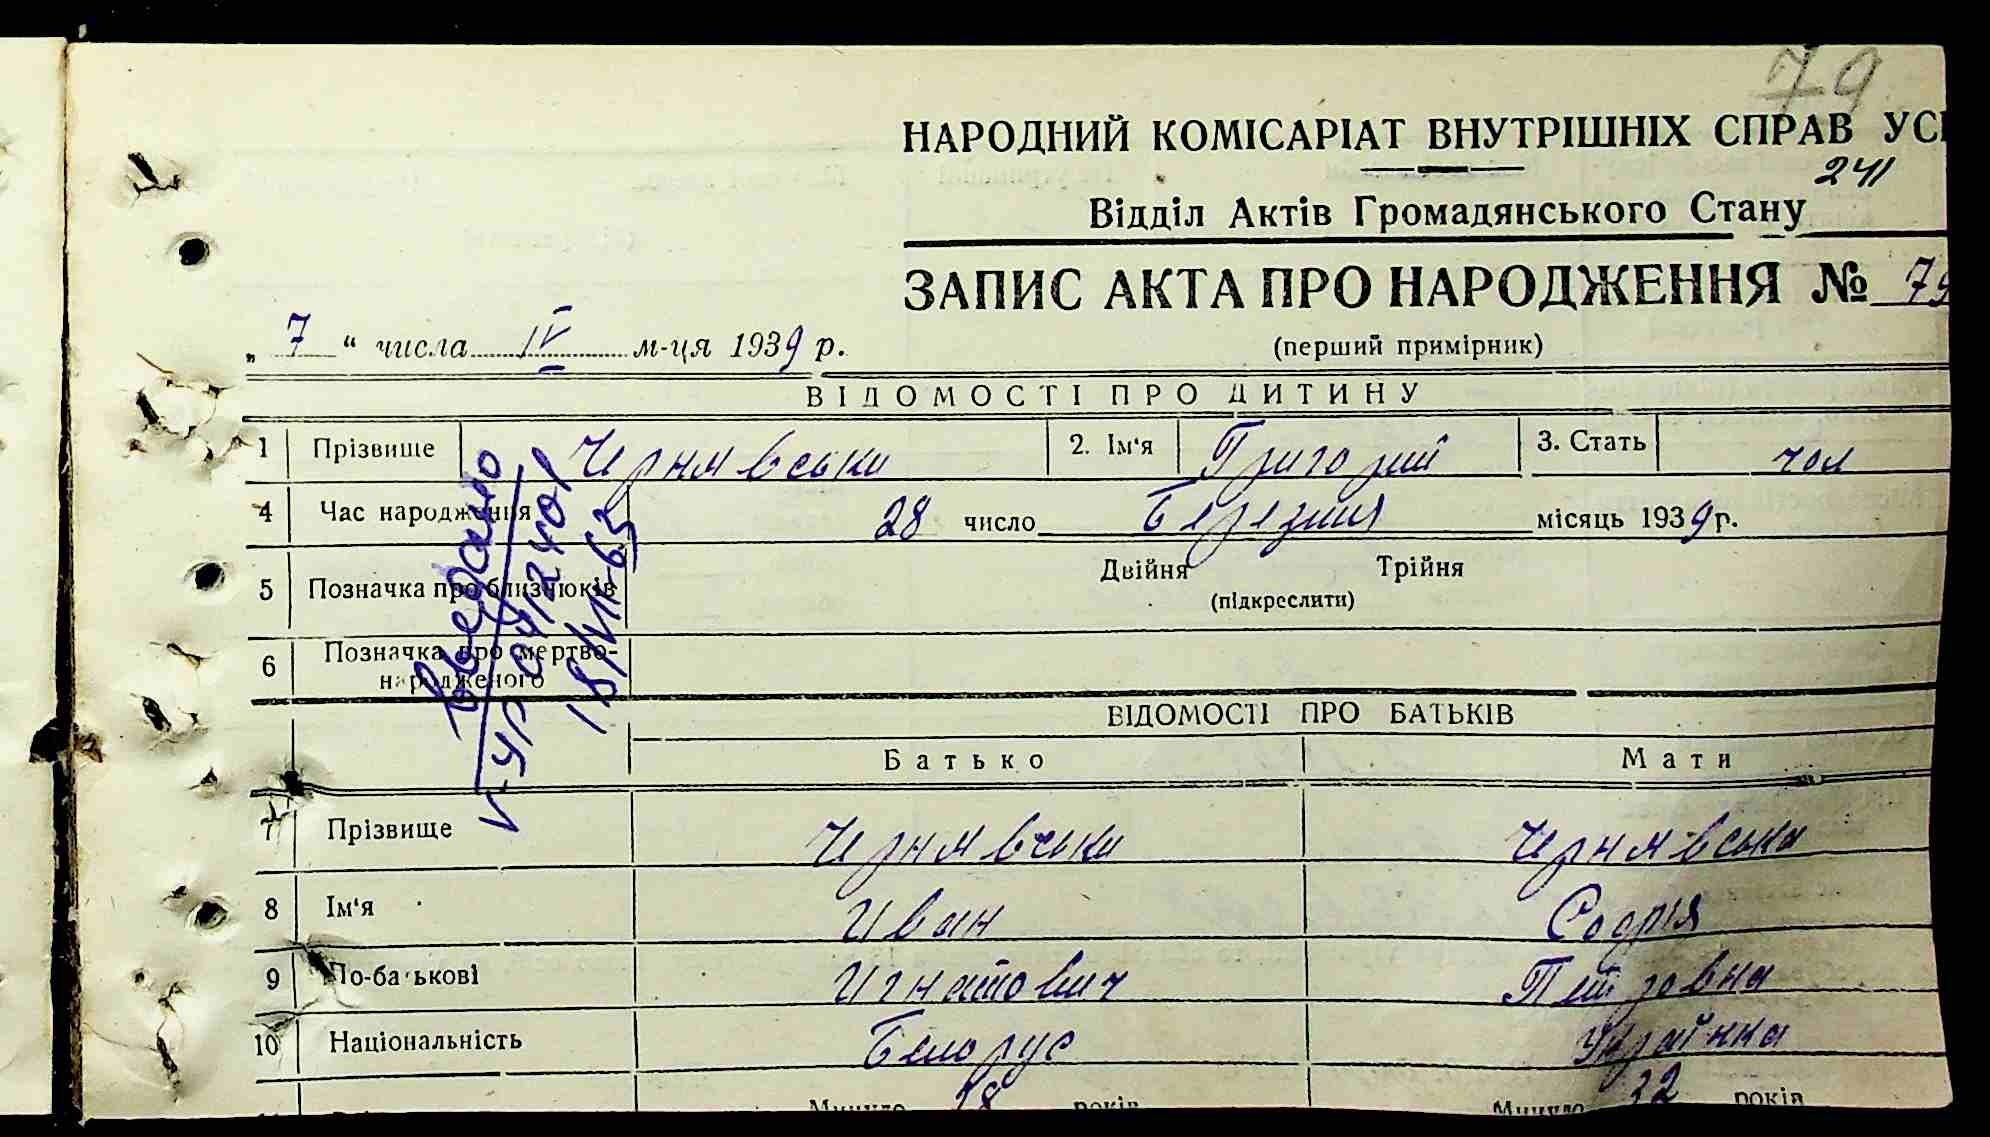 79
НАРОДНИЙ КОМІСАРІАТ ВНУТРІШНІХ СПРАВ
241
Відділ Актів Громадянського Стану
ЗАПИС АКТА ПРО НАРОДЖЕННЯ № 79
„ 7 " числа IV м-ця 1939 р.
(перший примірник)
ВІДОМОСТІ ПРО ДИТИНУ
1 Прізвище Чернявськи 2. Ім'я Григорий 3. Стать чол
4 Час народження 28 число Березня місяць 1939 р.
5 Позначка про близнюків Двійня Трійня
(підкреслити)
6 Позначка про мертво-
народженого
18/VII-65
ВІДОМОСТІ ПРО БАТЬКІВ
Батько Мати
7 Прізвище Чернявськи Чернявська
8 Ім'я Иван Софія
9 По-батькові Игнатович Петровна
10 Національність Белорус Українка
Минуло років Минуло 32 років